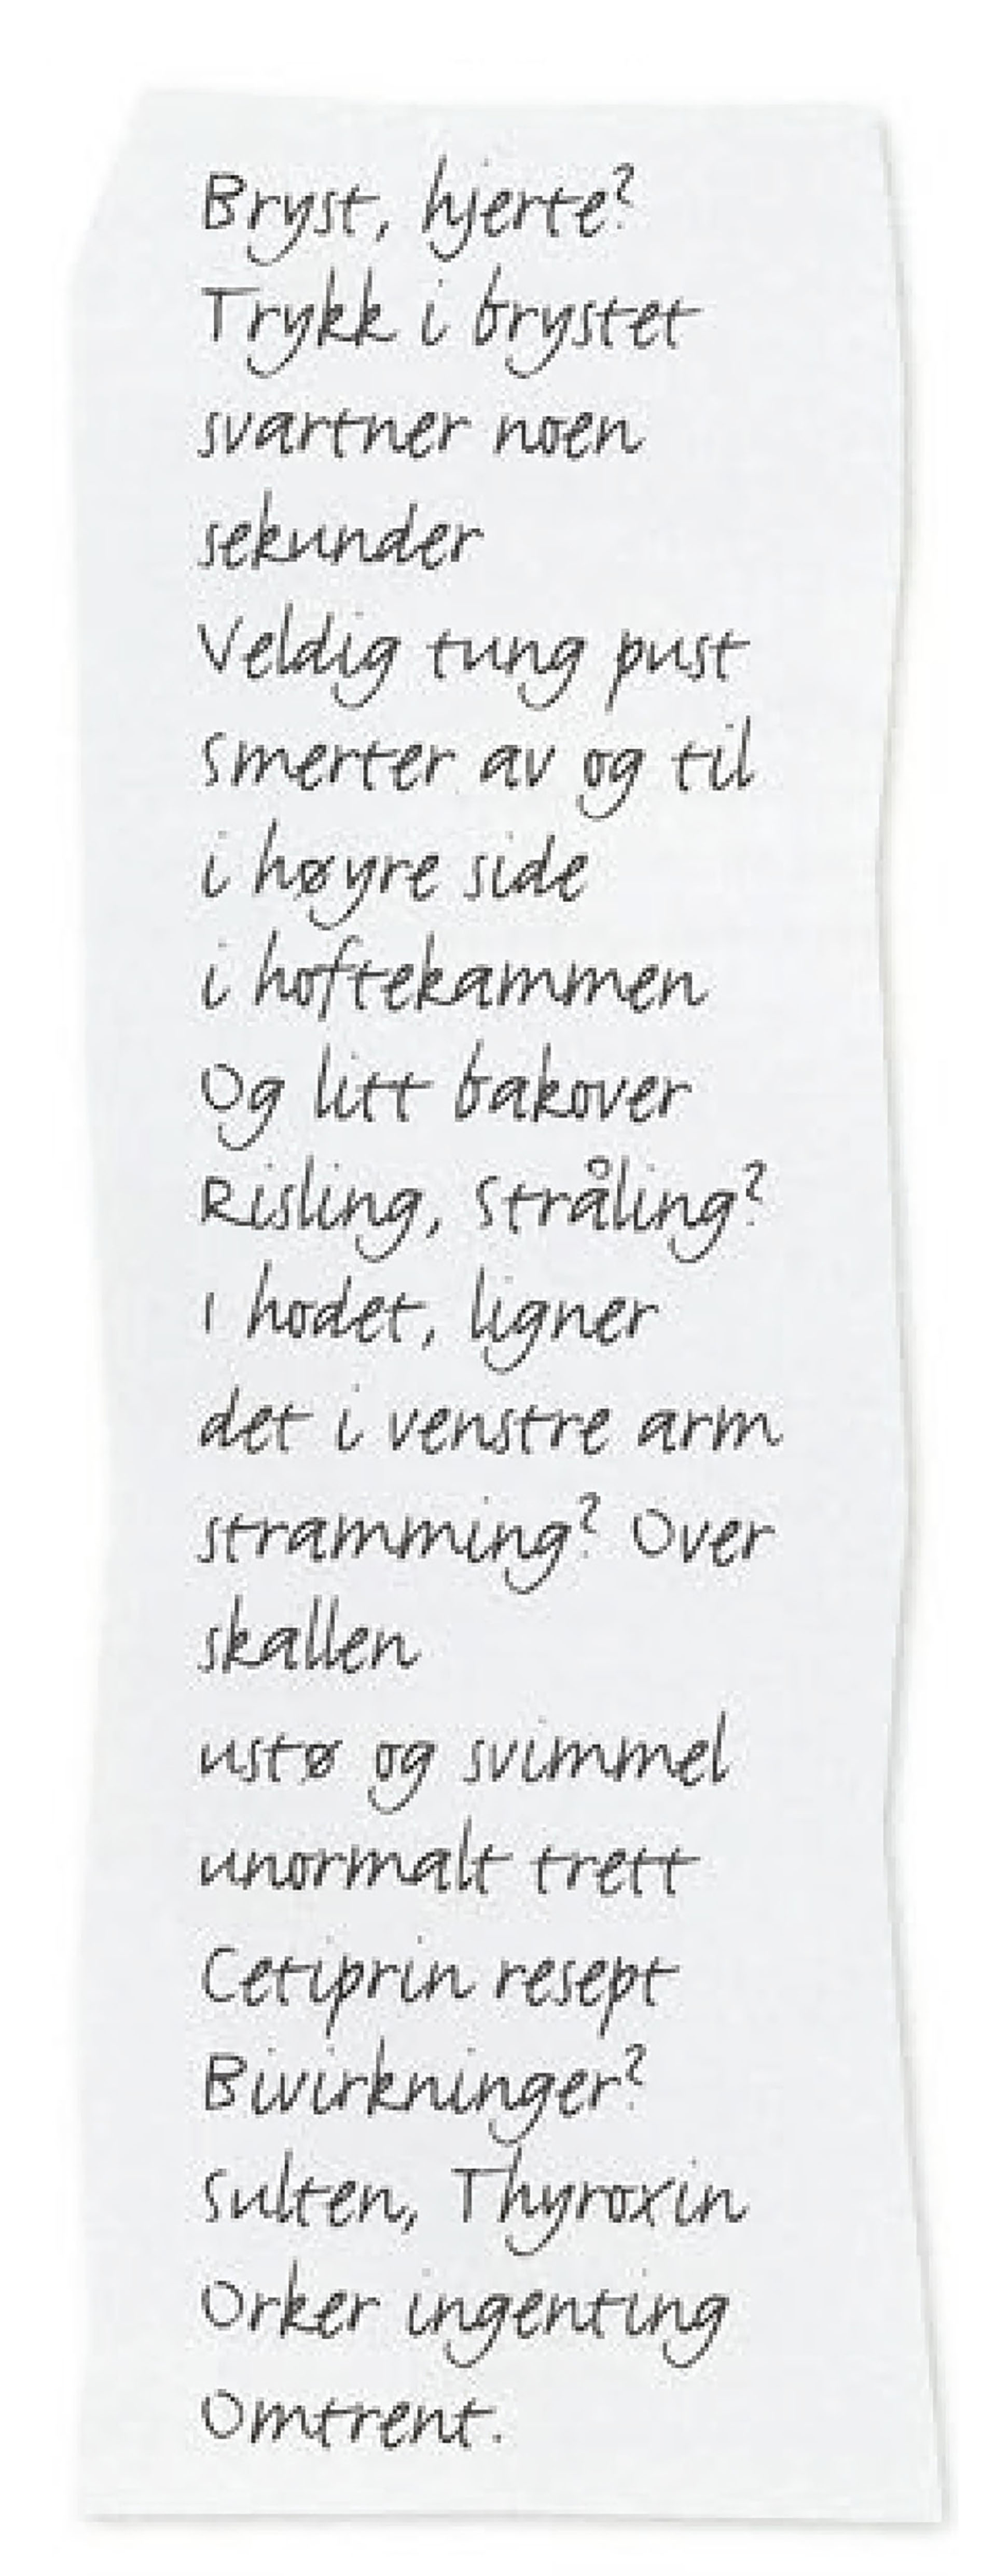 Bryst, hjerte?
Trykk i brystet
svartner noen
sekunder
Veldig tung pust
Smerter av og til
i høyre side
i hoftekammen
Og litt bakover
Risling, Stråling?
I hodet, ligner
det i venstre arm
stramming? Over
skallen
ustø og svimmel
unormalt trett
Cetiprin resept
Bivirkninger?
Sulten, Thyroxin
Orker ingenting
Omtrent.